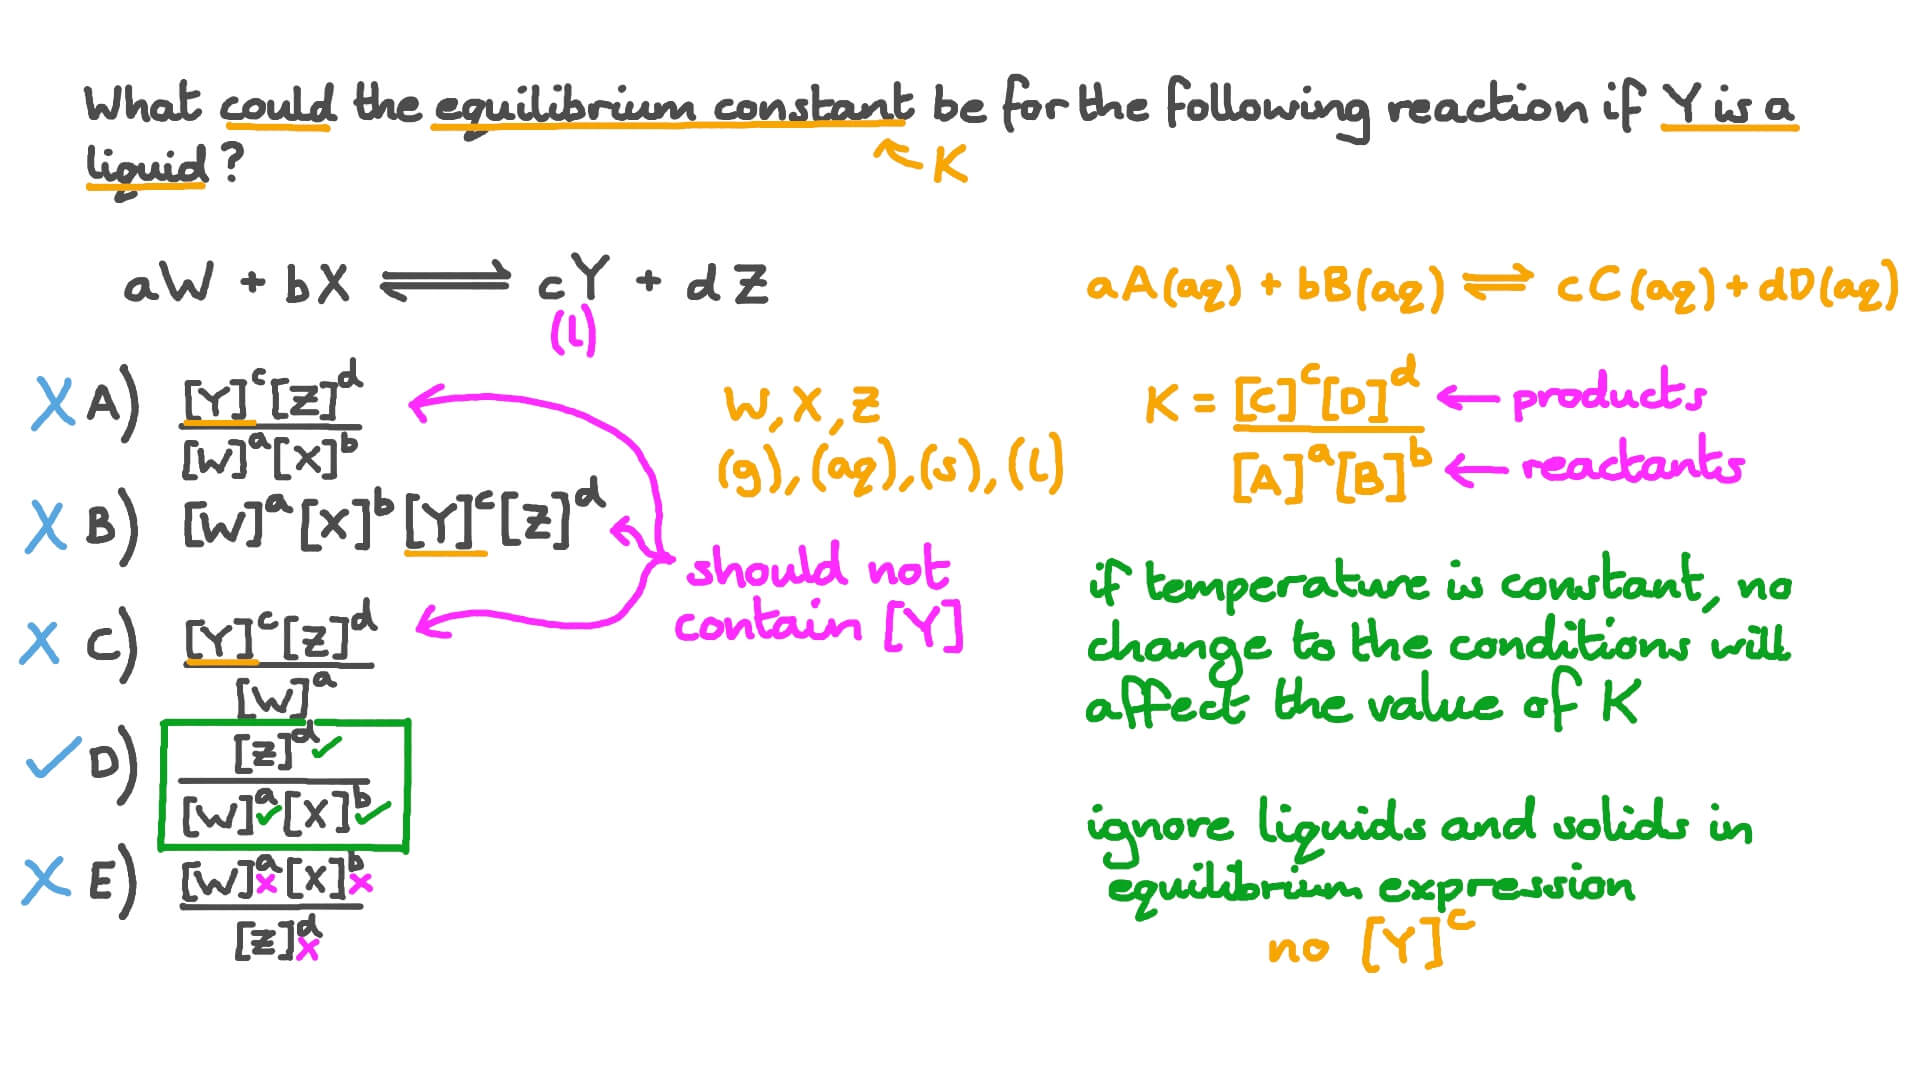 What could the equilibrium constant be for the following reaction if Y is a
liquid?
K
aW + bX ⇌ cY + dZ
(l)
aA(aq) + bB(aq) ⇌ cC(aq) + dD(aq)
A) [Y]^c[Z]^d
[W]^a[X]^b
B) [W]^a[X]^b[Y]^c[Z]^d
C) [Y]^c[Z]^d
[W]^a
D) [Z]^d
[W]^a[X]^b
E) [W]^a[X]^b
[Z]^d
W, X, Z
(g), (aq), (s), (l)
should not
contain [Y]
K = [C]^c[D]^d ← products
[A]^a[B]^b ← reactants
if temperature is constant, no
change to the conditions will
affect the value of K
ignore liquids and solids in
equilibrium expression
no [Y]^c